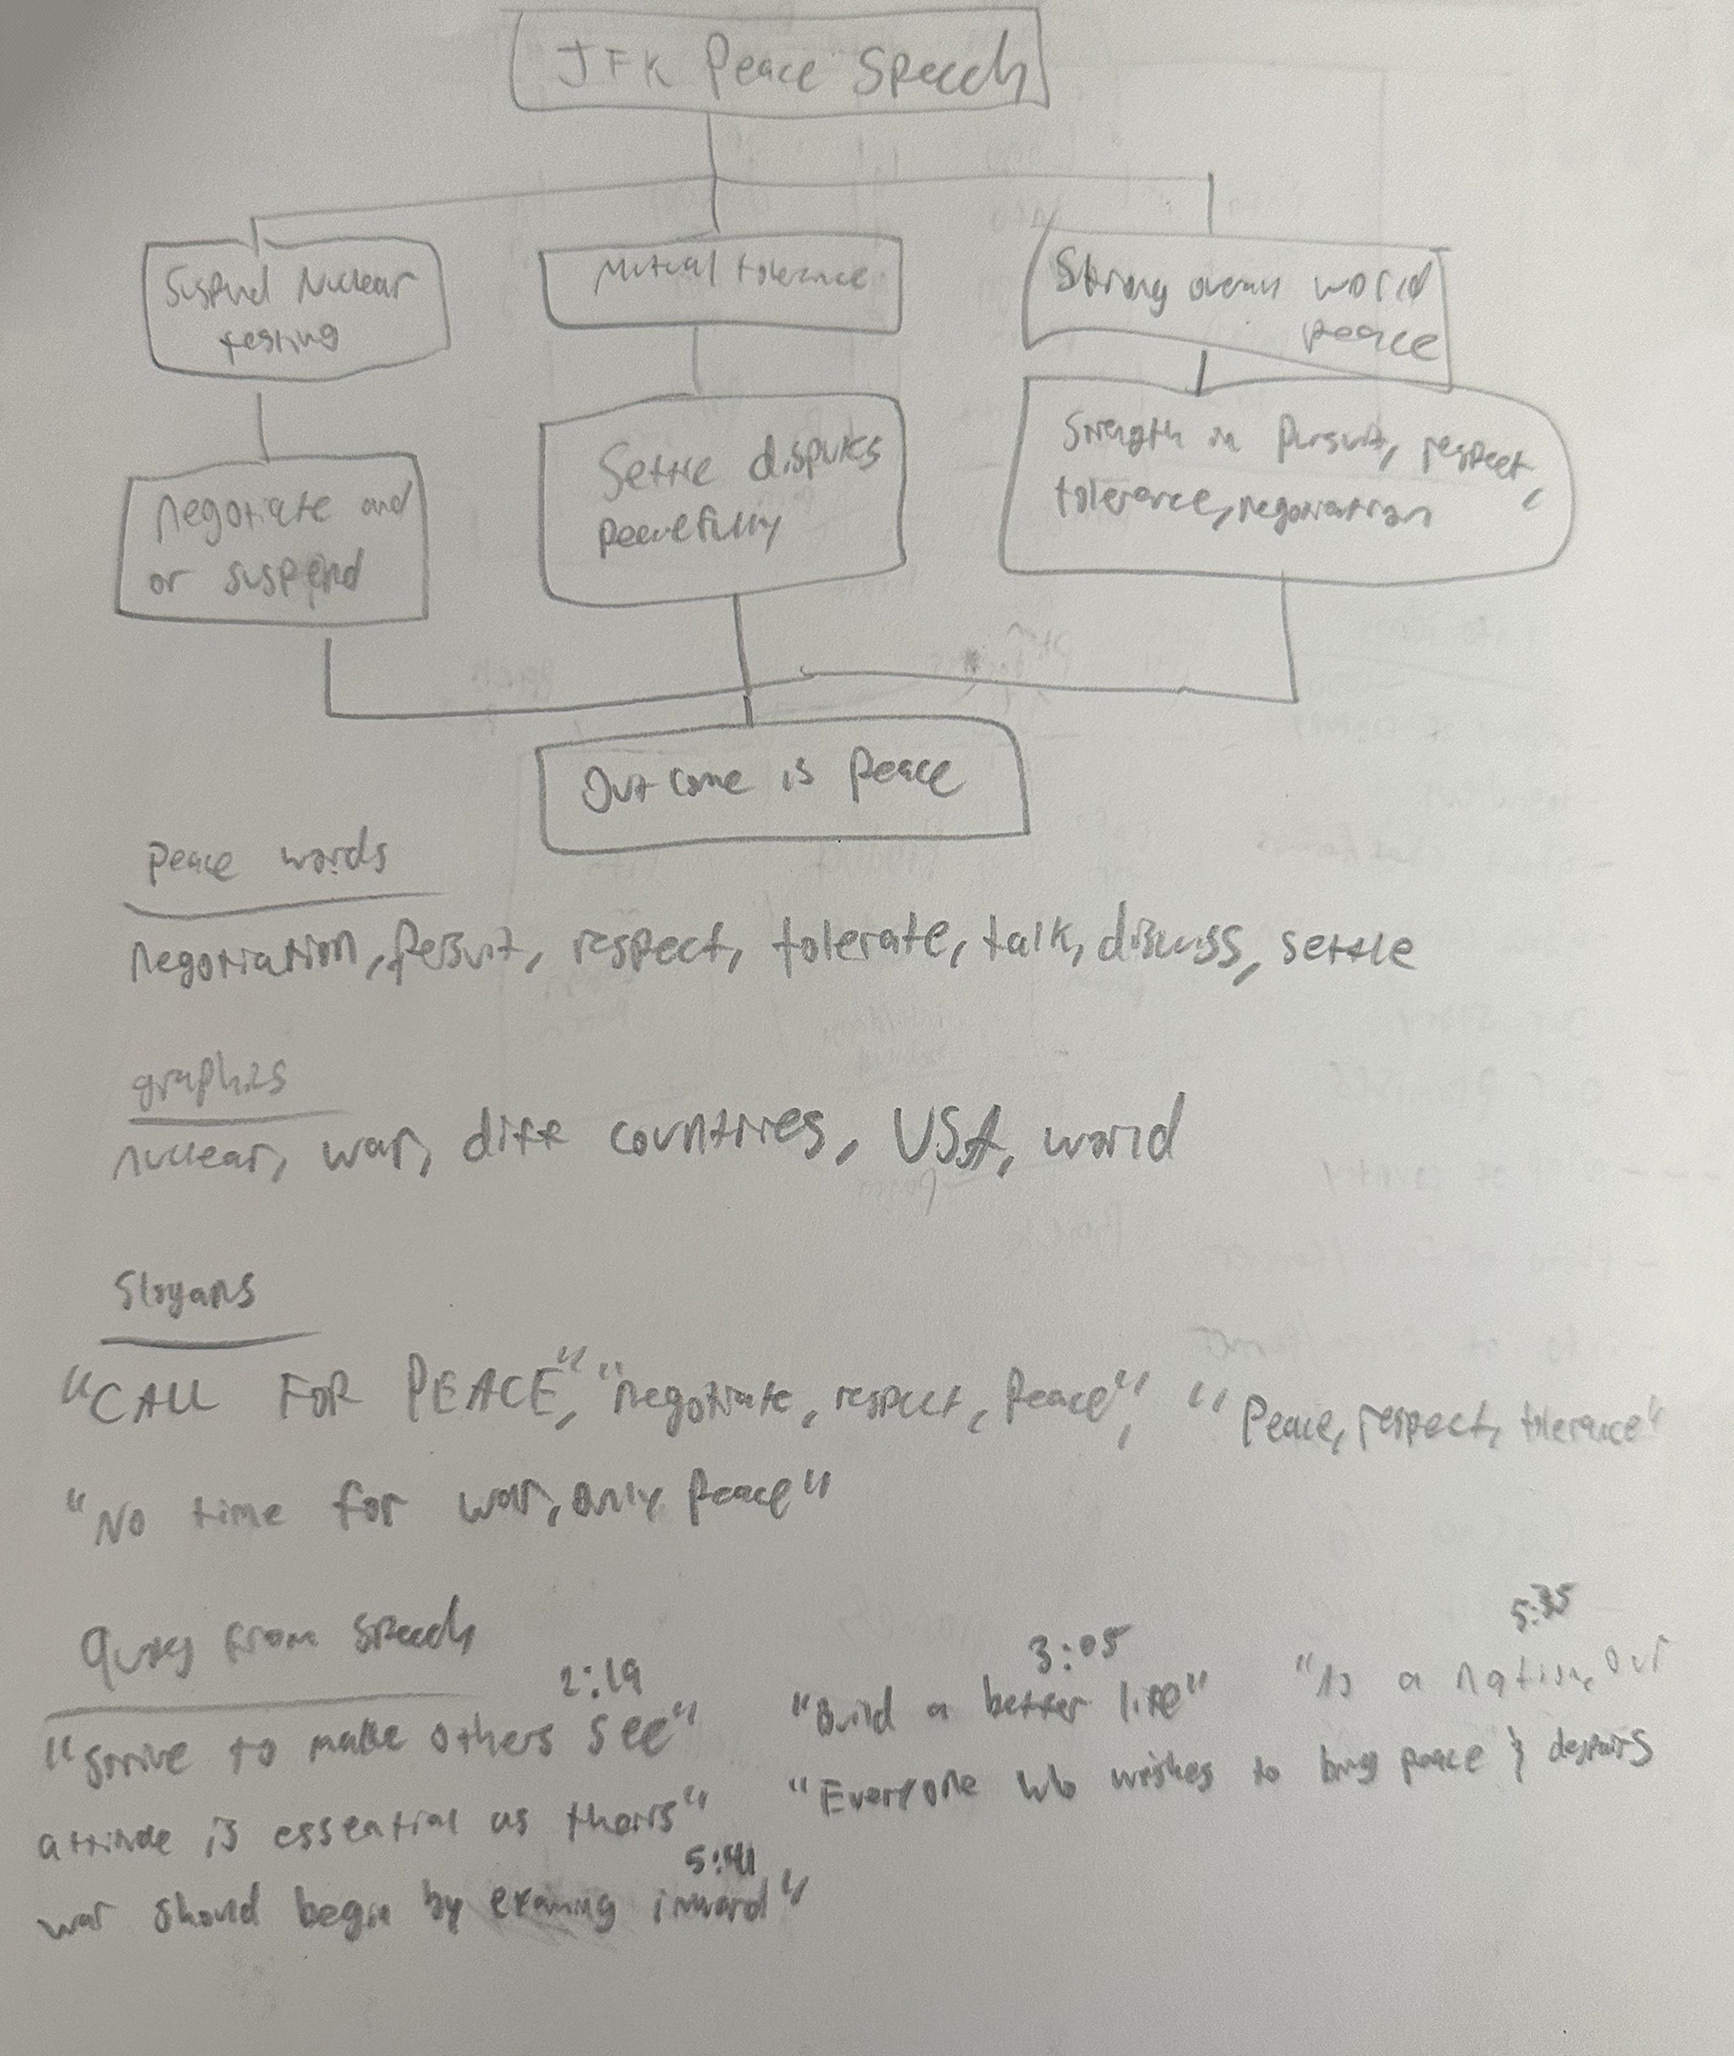 JFK Peace Speech
Suspend Nuclear
testing
Mutual tolerance
Strong overall world
peace
negotiate and
or suspend
Settle disputes
peacefully
Strength in pursuit, respect,
tolerance, negotiation
Outcome is peace
peace words
negotiation, persuit, respect, tolerate, talk, discuss, settle
graphics
nuclear, war, diff countries, USA, world
Slogans
"CALL FOR PEACE," "negotiate, respect, peace", "Peace, respect, tolerance"
"No time for war, only peace"
Quotes from speech
2:19 3:05 5:35
"strive to make others see" "Build a better life" "As a nation, our
attitude is essential as theirs" "Everyone who wishes to bring peace & despairs
5:41
war should begin by examing inward"